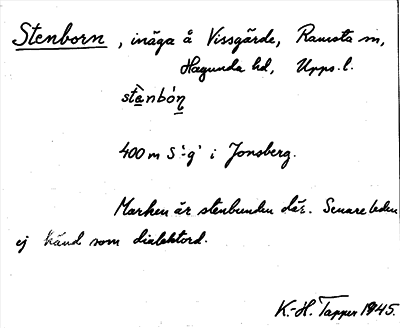 Stenborn, inäga å Vissgärde, Ramsta sn,
Hagunda hd, Upps. l.
stànbór̩n
400 m S -g i Jonsberg.
Marken är stenbunden där. Senare leden
ej känd som dialektord.
K.-H. Tapper 1945.